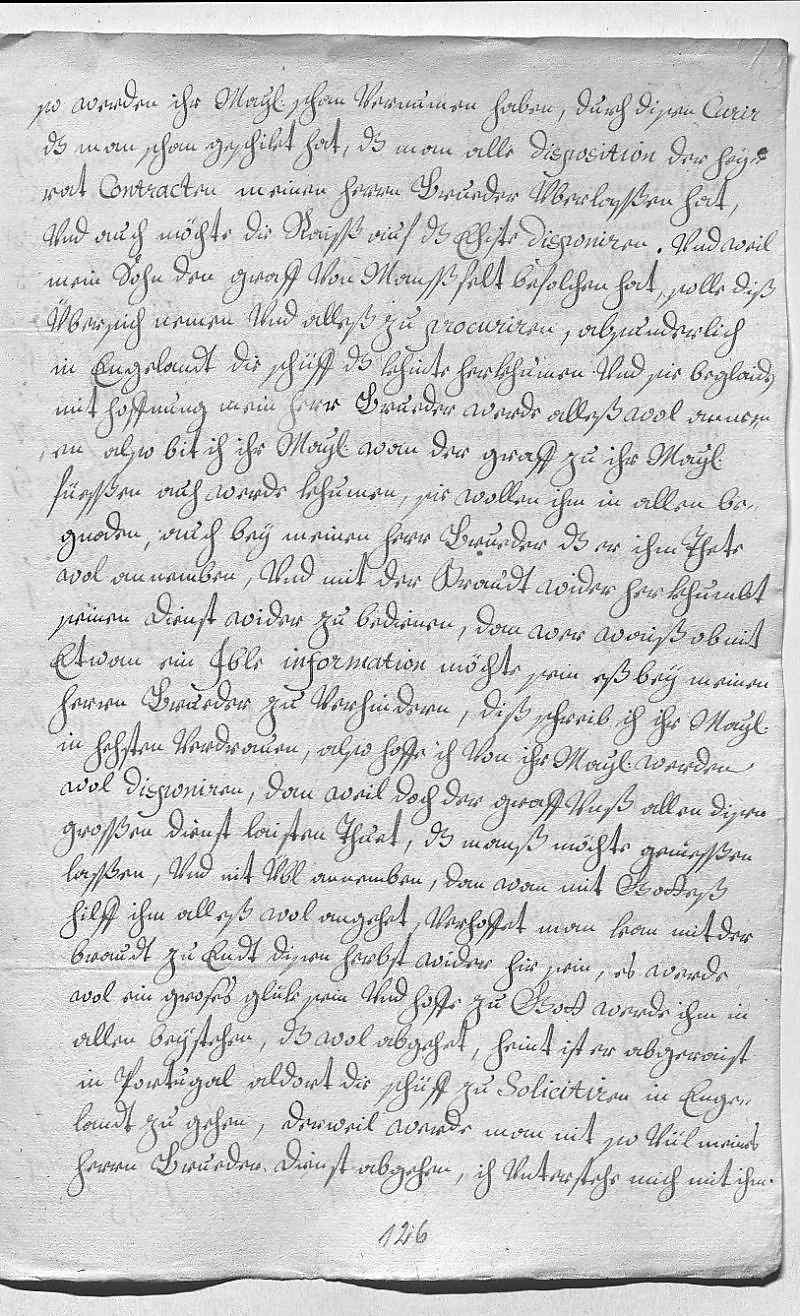 so werden ihr Mayl: schan Vernumen haben, durch disen Curir
dß man schan geschikt hat, dß man alle disposition der hey=
rat Contracten meinen herrn Brueder Uberlasßen hat,
Und auch möchte die Raiß auf dß Ehste disponiren. Und weil
mein Sohn den graff Von Manßfelt befolchen hat, solle diß
Über sich nemen Und alleß zu procuriren, absunderlich
in Engelandt die schüff dß khinte herkhumen Und sie beglaid
mit hoffnung mein herr Brueder werde alleß wol annem
en also bit ich ihr Mayl: wan der graff zu ihr Mayl:
füesßen auch werde khumen, sie wollen ihm in allen be=
gnaden, auch bey meinen herr Brueder dß er ihm Thete
wol annemben, Und mit der Braudt wider her khumbt
seinen dienst wider zu bedienen, dan wer waiß ob nit
Etwan ein Ible information möchte sein eß bey meinen
herrn Brueder zu Verhindern, diß schreib ich ihr Mayl:
in hehsten Verdrauen, also hoffe ich Von ihr Mayl: werden
wol disponiren, dan weil doch der graff Unß allen disen
grosßen dienst laisten Thuet, dß manß möchte geniesßen
lasßen, Und nit Ubl annemben, dan wan mit Gotteß
hilff ihm alleß wol angehet, Verhoffet man kan mit der
braudt zu Endt disen herbst wider hir sein, es werde
wol ein groses glük sein Und hoffe zu Gott werde ihm in
allen beystehen, dß wol abgehet, heint ist er abgeraist
in Portugal aldort die schüff zu Solicitiren in Enge=
landt zu gehen, derweil werde man nit so Vül meines
herrn Brueder dienst abgehen, ich Unterstehe mich mit ihm
126